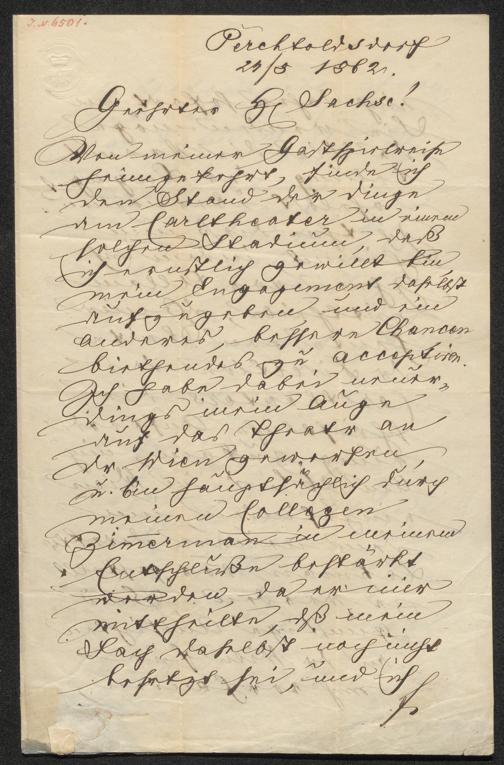 J.N. 6501.
Perchtoldsdorf
29/5 1862.
Geehrter H Sachse!
Von meiner Gastspielreise
heimgekehrt, finde ich
den Stand der Dinge
am Carltheater in einem
solchen Stadium, daß
ich ernstlich gewillt bin
mein Engagement daselbst
aufzugeben und ein
anderes, bessere Chancen
biethendes zu acceptiren.
Ich habe dabei neuer-
dings mein Auge
auf das Theatr an
dr Wien geworfen,
u. bin hauptsächlich durch
meinen Collegen
Zimerman in meinem
Entschluße bestärkt
worden, da er mir
mittheilte, dß mein
Fach daselbst noch nicht
besetzt sei, und ich